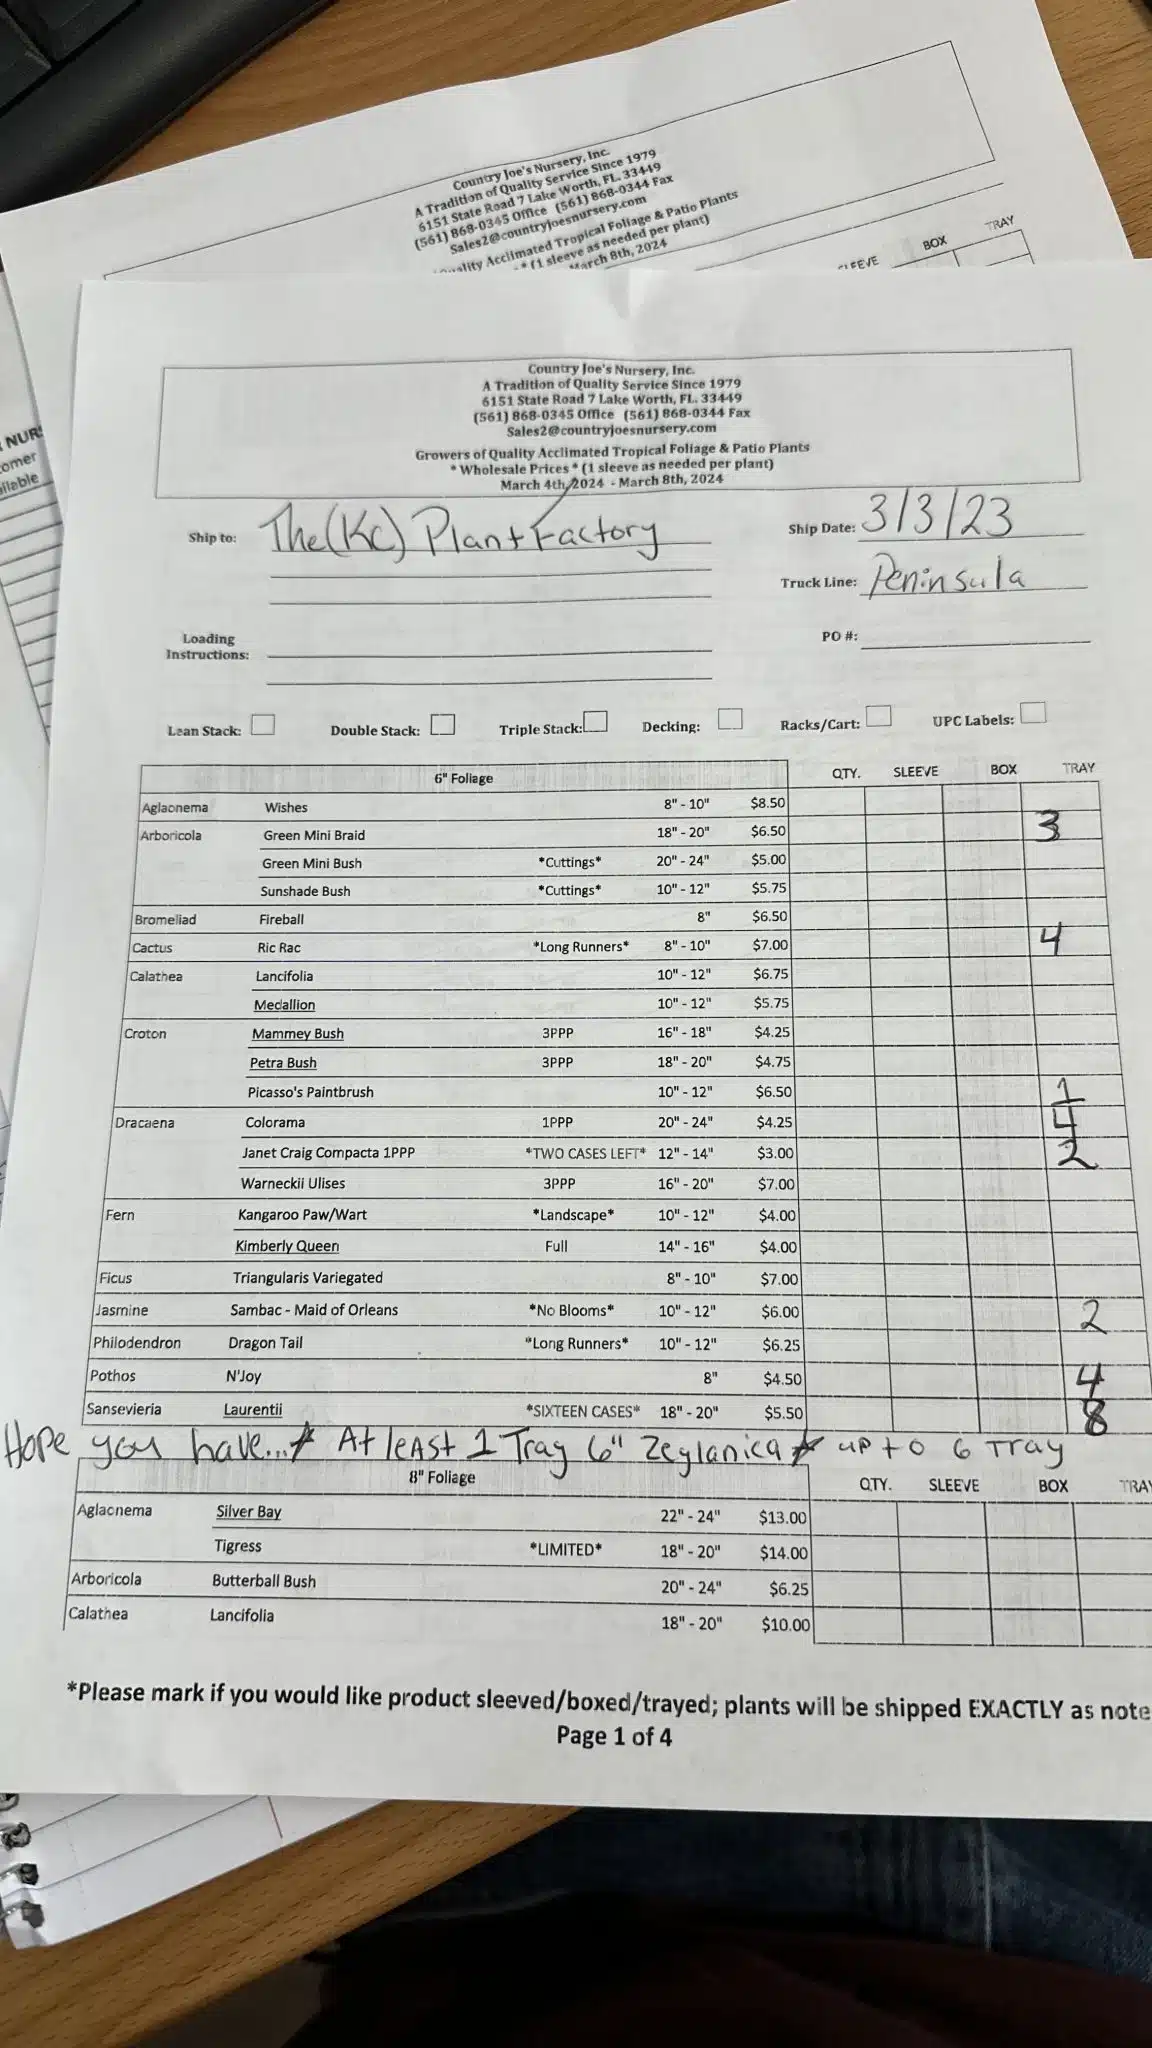 Country Joe's Nursery, Inc.
A Tradition of Quality Service Since 1979
6151 State Road 7 Lake Worth, FL. 33449
(561) 868-0345 Office (561) 868-0344 Fax
Sales2@countryjoesnursery.com
uality Acclimated Tropical Foliage & Patio Plants
* (1 sleeve as needed per plant)
March 8th, 2024
SLEEVE BOX TRAY
NUR
omer
ilable
Country Joe's Nursery, Inc.
A Tradition of Quality Service Since 1979
6151 State Road 7 Lake Worth, FL. 33449
(561) 868-0345 Office (561) 868-0344 Fax
Sales2@countryjoesnursery.com
Growers of Quality Acclimated Tropical Foliage & Patio Plants
* Wholesale Prices * (1 sleeve as needed per plant)
March 4th, 2024 - March 8th, 2024
Ship to: The (KC) Plant Factory Ship Date: 3/3/23
Truck Line: Peninsula
Loading Instructions: PO #:
Lean Stack: Double Stack: Triple Stack: Decking: Racks/Cart: UPC Labels:
6" Foliage QTY. SLEEVE BOX TRAY
Aglaonema Wishes 8" - 10" $8.50
Arboricola Green Mini Braid 18" - 20" $6.50 3
Green Mini Bush *Cuttings* 20" - 24" $5.00
Sunshade Bush *Cuttings* 10" - 12" $5.75
Bromeliad Fireball 8" $6.50
Cactus Ric Rac *Long Runners* 8" - 10" $7.00 4
Calathea Lancifolia 10" - 12" $6.75
Medallion 10" - 12" $5.75
Croton Mammey Bush 3PPP 16" - 18" $4.25
Petra Bush 3PPP 18" - 20" $4.75
Picasso's Paintbrush 10" - 12" $6.50 1
Dracaena Colorama 1PPP 20" - 24" $4.25 4
Janet Craig Compacta 1PPP *TWO CASES LEFT* 12" - 14" $3.00 2
Warneckii Ulises 3PPP 16" - 20" $7.00
Fern Kangaroo Paw/Wart *Landscape* 10" - 12" $4.00
Kimberly Queen Full 14" - 16" $4.00
Ficus Triangularis Variegated 8" - 10" $7.00
Jasmine Sambac - Maid of Orleans *No Blooms* 10" - 12" $6.00 2
Philodendron Dragon Tail *Long Runners* 10" - 12" $6.25
Pothos N'Joy 8" $4.50 4
Sansevieria Laurentii *SIXTEEN CASES* 18" - 20" $5.50 8
Hope you have... * At least 1 Tray 6" Zeylanica * up to 6 Tray
8" Foliage QTY. SLEEVE BOX TRAY
Aglaonema Silver Bay 22" - 24" $13.00
Tigress *LIMITED* 18" - 20" $14.00
Arboricola Butterball Bush 20" - 24" $6.25
Calathea Lancifolia 18" - 20" $10.00
*Please mark if you would like product sleeved/boxed/trayed; plants will be shipped EXACTLY as note
Page 1 of 4